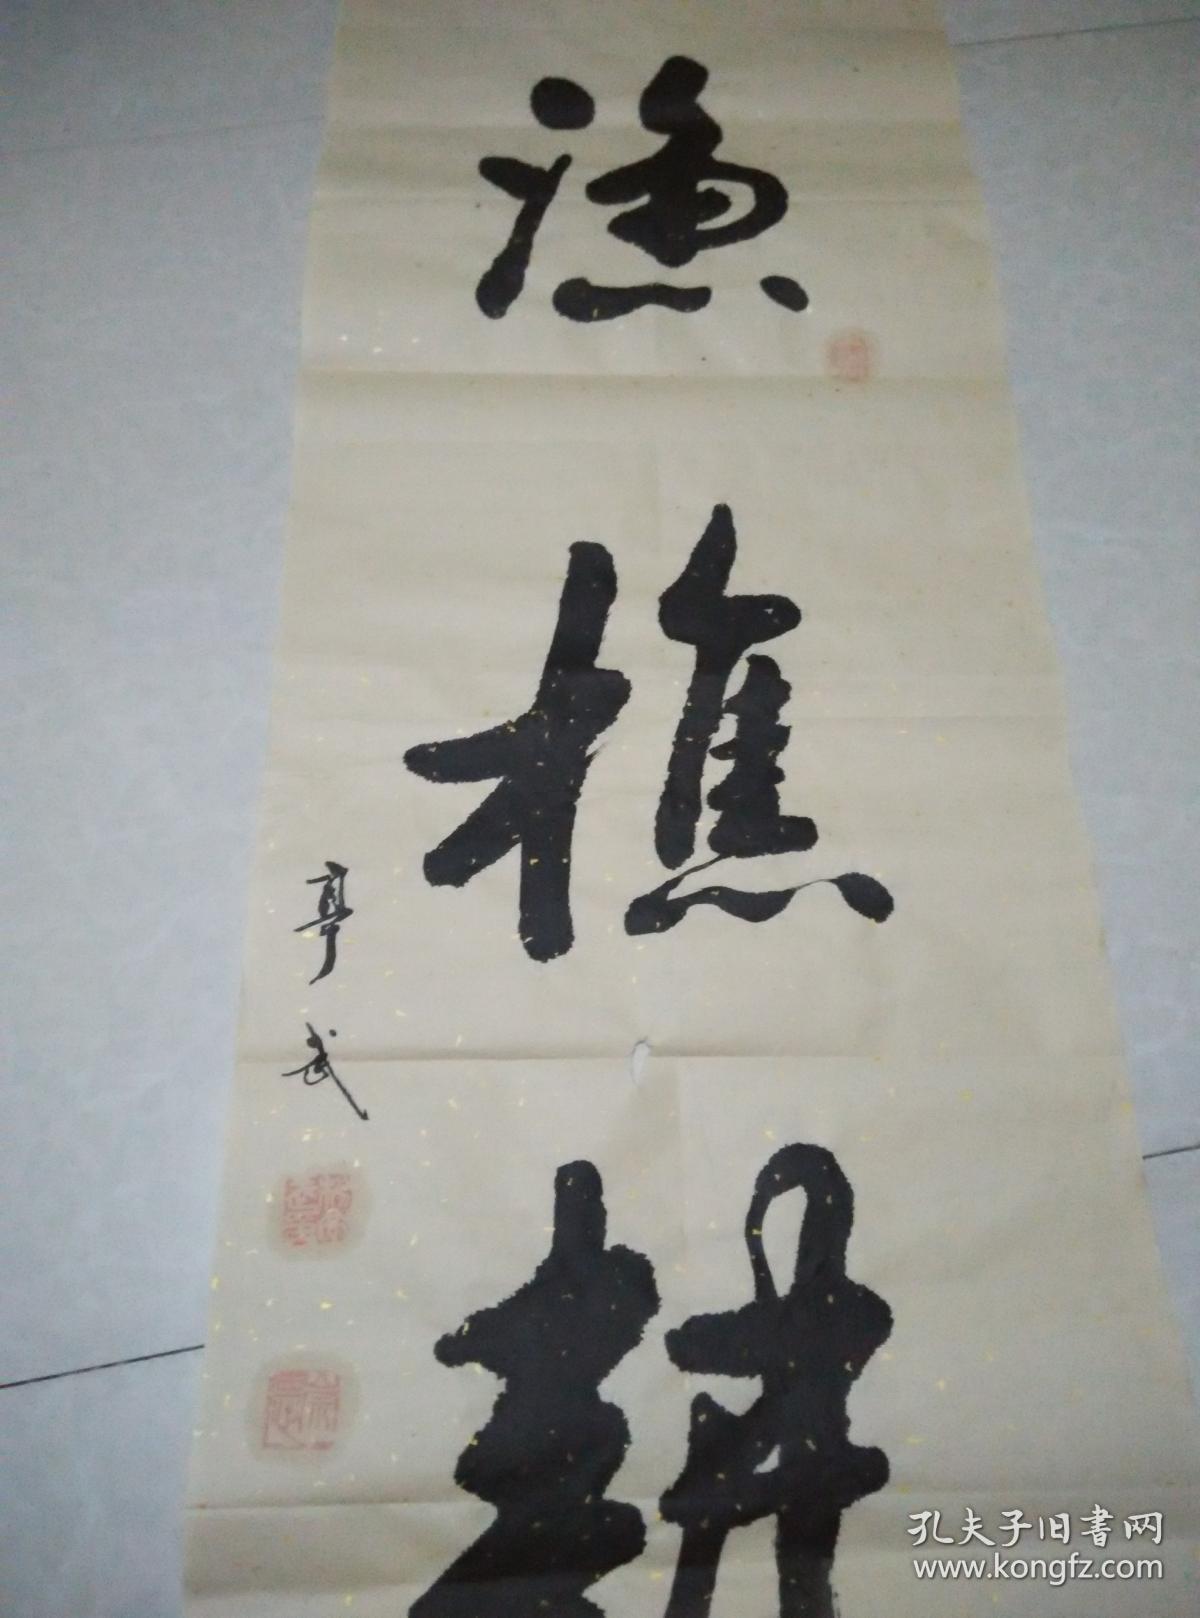 漁
樵
耕
亭武
孔夫子旧書网
www.kongfz.com